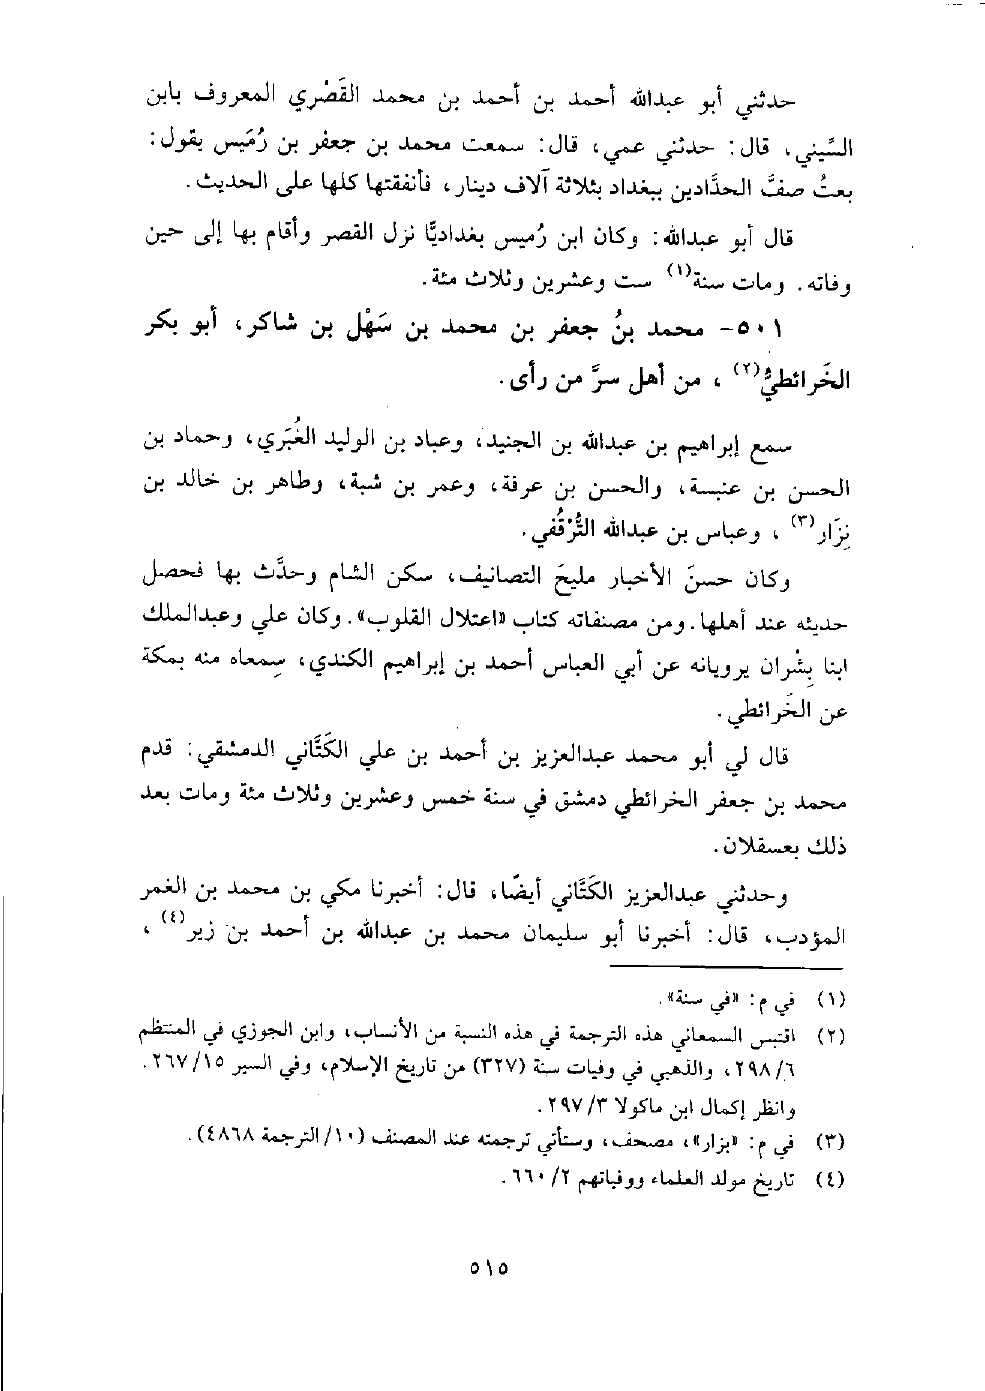 حدثني أبو عبدالله أحمد بن أحمد بن محمد القَصْري المعروف بابن
السِّيني، قال: حدثني عمي، قال: سمعت محمد بن جعفر بن رُمَيس يقول:
بعتُ صفَّ الحدَّادين ببغداد بثلاثة آلاف دينار، فأنفقتها كلها على الحديث.
قال أبو عبدالله: وكان ابن رُميس بغداديًّا نزل القصر وأقام بها إلى حين
وفاته. ومات سنة(١) ست وعشرين وثلاث مئة.
٥٠١- محمد بنُ جعفر بن محمد بن سَهْل بن شاكر، أبو بكر
الخَرائطيُّ(٢)، من أهل سرَّ من رأى.
سمع إبراهيم بن عبدالله بن الجنيد، وعباد بن الوليد الغُبَري، وحماد بن
الحسن بن عنبسة، والحسن بن عرفة، وعمر بن شبة، وطاهر بن خالد بن
نِزَار(٣)، وعباس بن عبدالله التُّرْقُفي.
وكان حسنَ الأخبار مليحَ التصانيف، سكن الشام وحدَّث بها فحصل
حديثه عند أهلها. ومن مصنفاته كتاب «اعتلال القلوب». وكان علي وعبدالملك
ابنا بِشْران يرويانه عن أبي العباس أحمد بن إبراهيم الكندي، سمعاه منه بمكة
عن الخَرائطي.
قال لي أبو محمد عبدالعزيز بن أحمد بن علي الكَتَّاني الدمشقي: قدم
محمد بن جعفر الخرائطي دمشق في سنة خمس وعشرين وثلاث مئة ومات بعد
ذلك بعسقلان.
وحدثني عبدالعزيز الكَتَّاني أيضًا، قال: أخبرنا مكي بن محمد بن الغمر
المؤدب، قال: أخبرنا أبو سليمان محمد بن عبدالله بن أحمد بن زبر(٤)،
(١) في م: «في سنة».
(٢) اقتبس السمعاني هذه الترجمة في هذه النسبة من الأنساب، وابن الجوزي في المنتظم
٦/ ٢٩٨، والذهبي في وفيات سنة (٣٢٧) من تاريخ الإسلام، وفي السير ١٥/ ٢٦٧.
وانظر إكمال ابن ماكولا ٣/ ٢٩٧.
(٣) في م: «بزار»، مصحف، وستأتي ترجمته عند المصنف (١٠/ الترجمة ٤٨٦٨).
(٤) تاريخ مولد العلماء ووفياتهم ٢/ ٦٦٠.
٥١٥